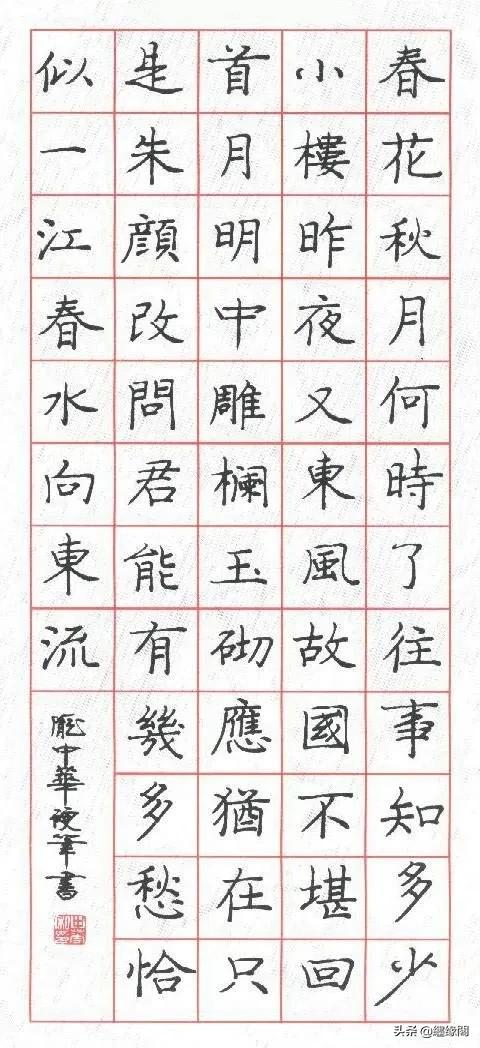 春花秋月何時了往事知多少
小樓昨夜又東風故國不堪回
首月明中雕欄玉砌應猶在只
是朱顔改問君能有幾多愁恰
似一江春水向東流
龐中華硬筆書
头条 @纏缘閣